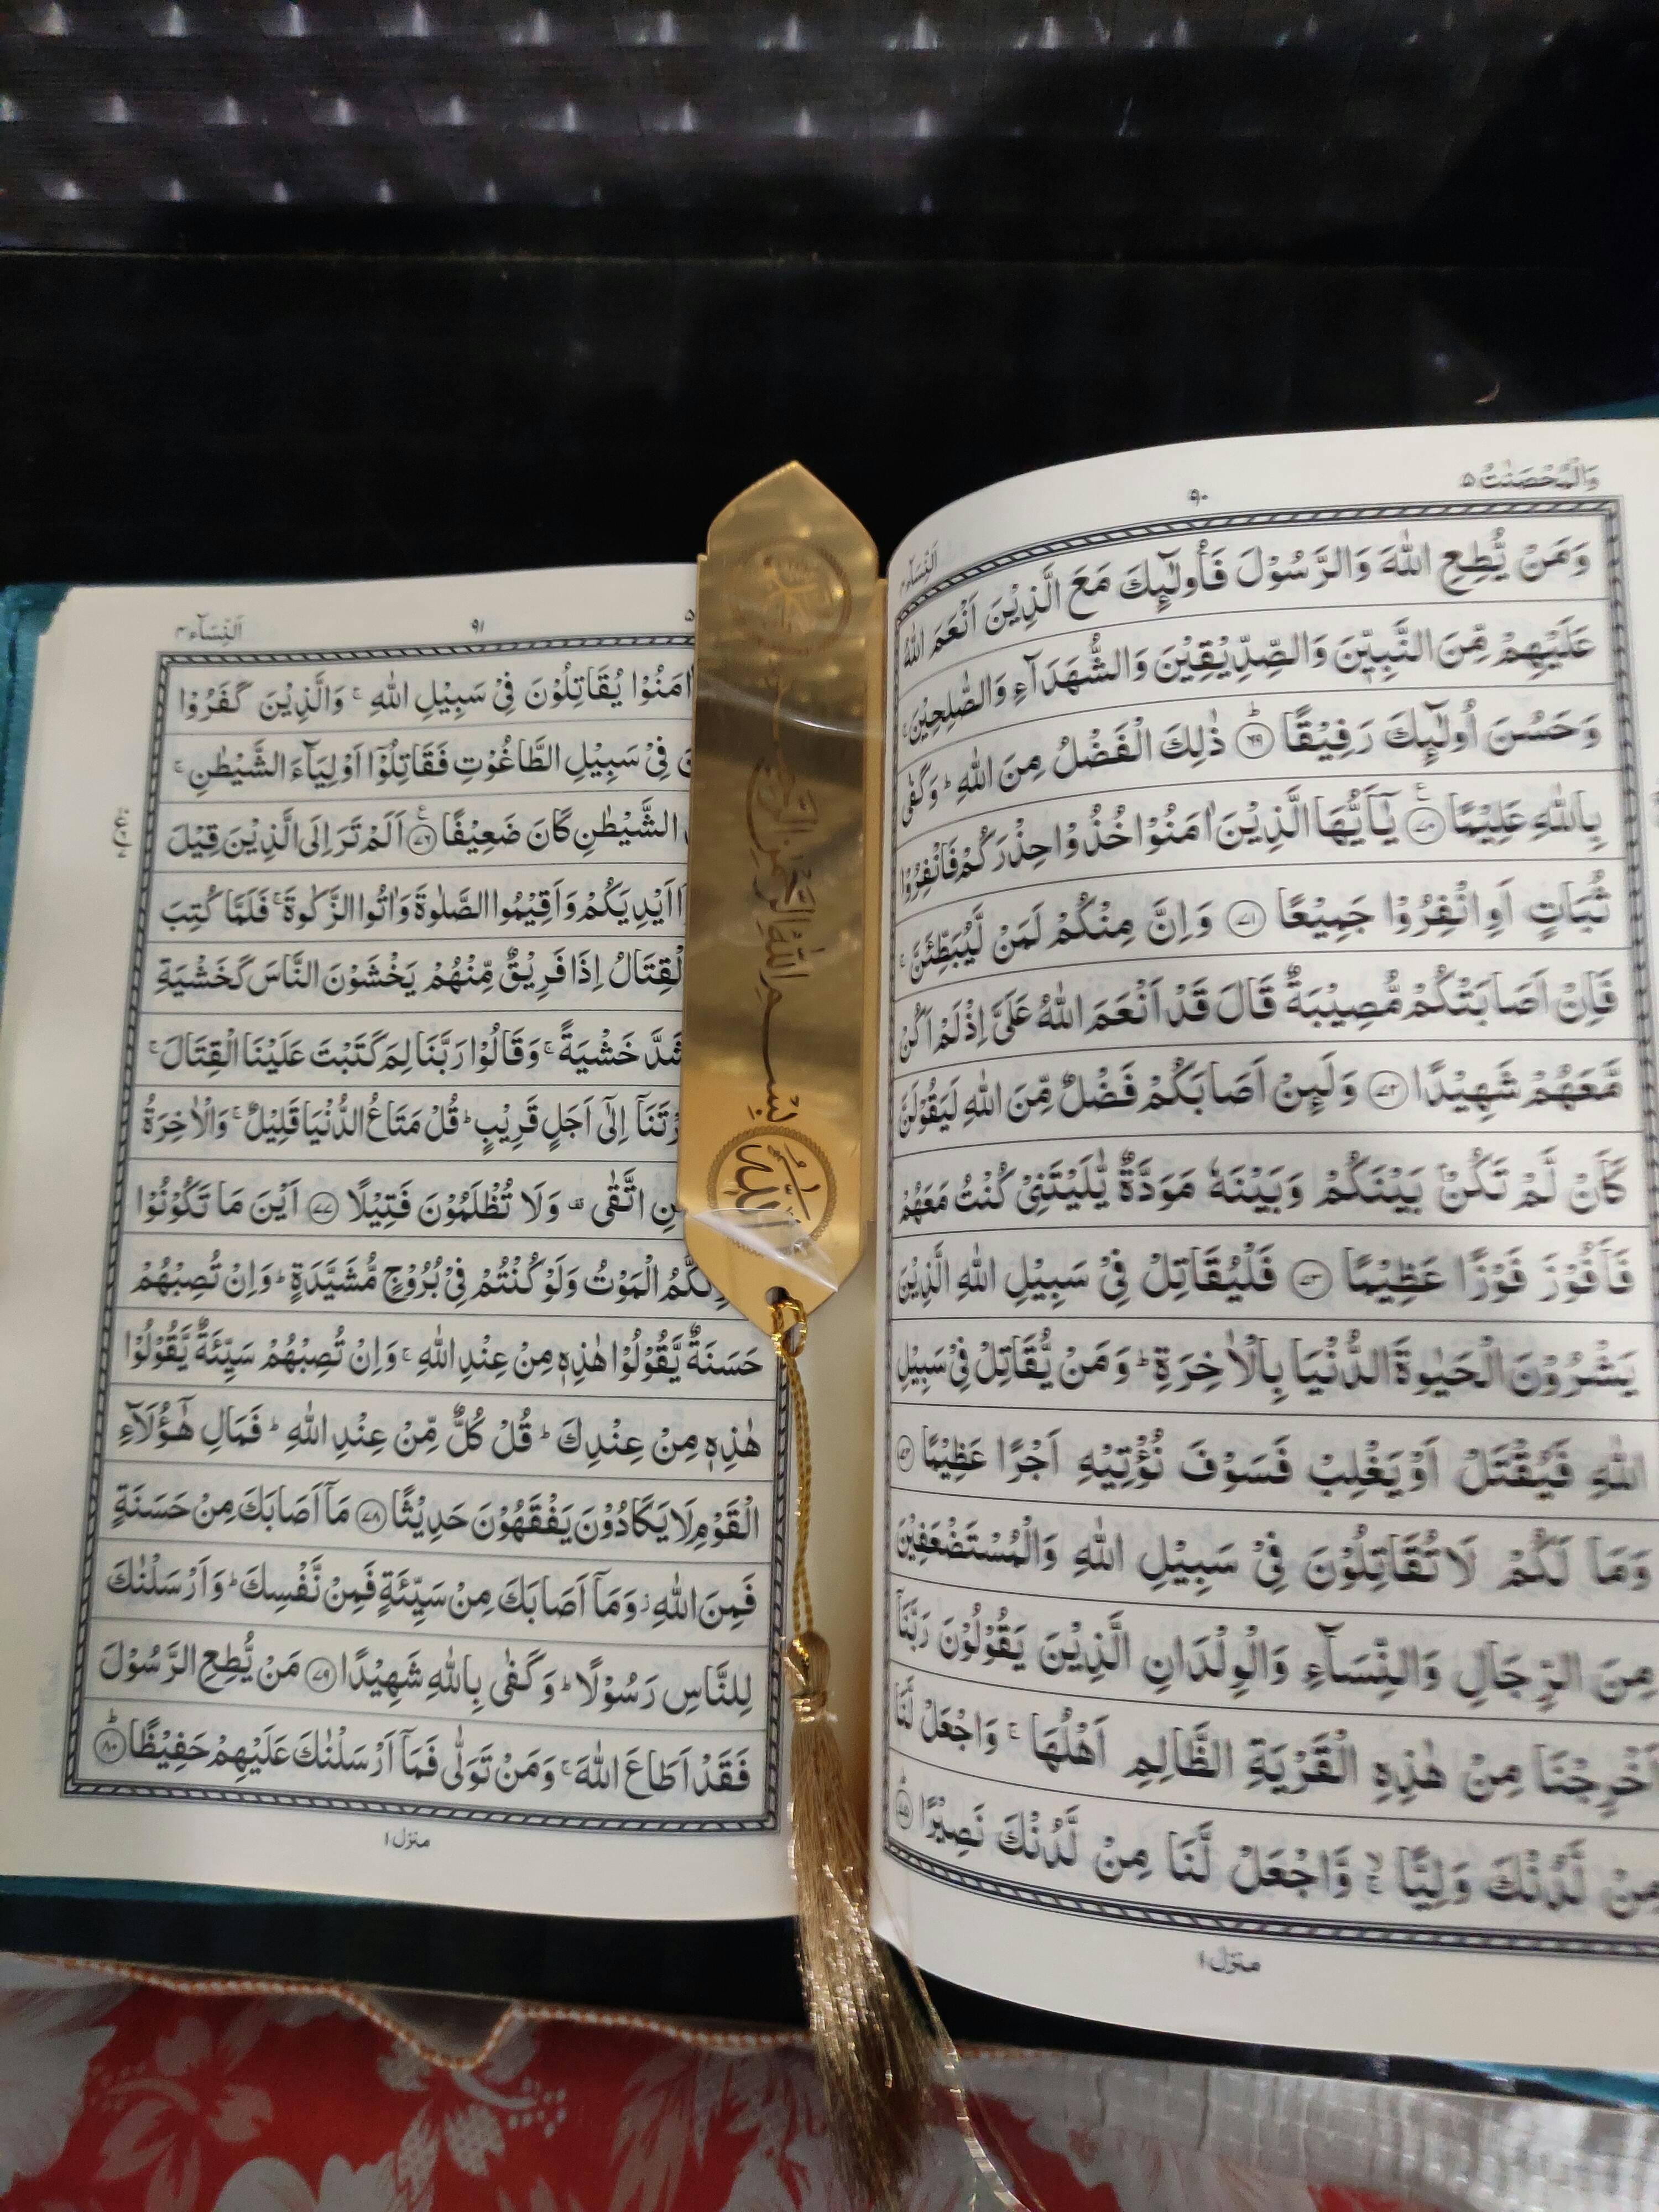 وَالْمُحْصَنٰتُ ۵
۹۰
اَلنِّسَآء ۴
وَمَنْ يُّطِعِ اللّٰهَ وَالرَّسُوْلَ فَاُولٰٓئِكَ مَعَ الَّذِيْنَ اَنْعَمَ اللّٰهُ
عَلَيْهِمْ مِّنَ النَّبِيّٖنَ وَالصِّدِّيْقِيْنَ وَالشُّهَدَآءِ وَالصّٰلِحِيْنَ ۚ
وَحَسُنَ اُولٰٓئِكَ رَفِيْقًا ؕ ۶۹ ذٰلِكَ الْفَضْلُ مِنَ اللّٰهِ ؕ وَكَفٰى
بِاللّٰهِ عَلِيْمًا ۷۰ يٰٓاَيُّهَا الَّذِيْنَ اٰمَنُوْا خُذُوْا حِذْرَكُمْ فَانْفِرُوْا
ثُبَاتٍ اَوِ انْفِرُوْا جَمِيْعًا ۷۱ وَاِنَّ مِنْكُمْ لَمَنْ لَّيُبَطِّئَنَّ ۚ
فَاِنْ اَصَابَتْكُمْ مُّصِيْبَةٌ قَالَ قَدْ اَنْعَمَ اللّٰهُ عَلَىَّ اِذْ لَمْ اَكُنْ
مَّعَهُمْ شَهِيْدًا ۷۲ وَلَئِنْ اَصَابَكُمْ فَضْلٌ مِّنَ اللّٰهِ لَيَقُوْلَنَّ
كَاَنْ لَّمْ تَكُنْۢ بَيْنَكُمْ وَبَيْنَهٗ مَوَدَّةٌ يّٰلَيْتَنِىْ كُنْتُ مَعَهُمْ
فَاَفُوْزَ فَوْزًا عَظِيْمًا ۷۳ فَلْيُقَاتِلْ فِىْ سَبِيْلِ اللّٰهِ الَّذِيْنَ
يَشْرُوْنَ الْحَيٰوةَ الدُّنْيَا بِالْاٰخِرَةِ ؕ وَمَنْ يُّقَاتِلْ فِىْ سَبِيْلِ
اللّٰهِ فَيُقْتَلْ اَوْ يَغْلِبْ فَسَوْفَ نُؤْتِيْهِ اَجْرًا عَظِيْمًا ۷۴
وَمَا لَكُمْ لَا تُقَاتِلُوْنَ فِىْ سَبِيْلِ اللّٰهِ وَالْمُسْتَضْعَفِيْنَ
مِنَ الرِّجَالِ وَالنِّسَآءِ وَالْوِلْدَانِ الَّذِيْنَ يَقُوْلُوْنَ رَبَّنَآ
اَخْرِجْنَا مِنْ هٰذِهِ الْقَرْيَةِ الظَّالِمِ اَهْلُهَا ۚ وَاجْعَلْ لَّنَا
مِنْ لَّدُنْكَ وَلِيًّا ۙ ۚ وَّاجْعَلْ لَّنَا مِنْ لَّدُنْكَ نَصِيْرًا ؕ ۷۵
منزل ۱
بِسْمِ اللّٰهِ الرَّحْمٰنِ الرَّحِيْمِ
اللّٰه
۵
۹۱
اَلنِّسَآء ۴
اٰمَنُوْا يُقَاتِلُوْنَ فِىْ سَبِيْلِ اللّٰهِ ۚ وَالَّذِيْنَ كَفَرُوْا
فِىْ سَبِيْلِ الطَّاغُوْتِ فَقَاتِلُوْٓا اَوْلِيَآءَ الشَّيْطٰنِ ۚ
الشَّيْطٰنِ كَانَ ضَعِيْفًا ۷۶ اَلَمْ تَرَ اِلَى الَّذِيْنَ قِيْلَ
اَيْدِيَكُمْ وَاَقِيْمُوا الصَّلٰوةَ وَاٰتُوا الزَّكٰوةَ ۚ فَلَمَّا كُتِبَ
الْقِتَالُ اِذَا فَرِيْقٌ مِّنْهُمْ يَخْشَوْنَ النَّاسَ كَخَشْيَةِ
شَدَّ خَشْيَةً ۚ وَقَالُوْا رَبَّنَا لِمَ كَتَبْتَ عَلَيْنَا الْقِتَالَ ۚ
رْتَنَآ اِلٰٓى اَجَلٍ قَرِيْبٍ ؕ قُلْ مَتَاعُ الدُّنْيَا قَلِيْلٌ ۚ وَالْاٰخِرَةُ
نِ اتَّقٰى وَلَا تُظْلَمُوْنَ فَتِيْلًا ۷۷ اَيْنَ مَا تَكُوْنُوْا
كُّمُ الْمَوْتُ وَلَوْ كُنْتُمْ فِىْ بُرُوْجٍ مُّشَيَّدَةٍ ؕ وَاِنْ تُصِبْهُمْ
حَسَنَةٌ يَّقُوْلُوْا هٰذِهٖ مِنْ عِنْدِ اللّٰهِ ۚ وَاِنْ تُصِبْهُمْ سَيِّئَةٌ يَّقُوْلُوْا
هٰذِهٖ مِنْ عِنْدِكَ ؕ قُلْ كُلٌّ مِّنْ عِنْدِ اللّٰهِ ؕ فَمَالِ هٰٓؤُلَآءِ
الْقَوْمِ لَا يَكَادُوْنَ يَفْقَهُوْنَ حَدِيْثًا ۷۸ مَآ اَصَابَكَ مِنْ حَسَنَةٍ
فَمِنَ اللّٰهِ ؗ وَمَآ اَصَابَكَ مِنْ سَيِّئَةٍ فَمِنْ نَّفْسِكَ ؕ وَاَرْسَلْنٰكَ
لِلنَّاسِ رَسُوْلًا ؕ وَكَفٰى بِاللّٰهِ شَهِيْدًا ۷۹ مَنْ يُّطِعِ الرَّسُوْلَ
فَقَدْ اَطَاعَ اللّٰهَ ۚ وَمَنْ تَوَلّٰى فَمَآ اَرْسَلْنٰكَ عَلَيْهِمْ حَفِيْظًا ؕ ۸۰
منزل ۱